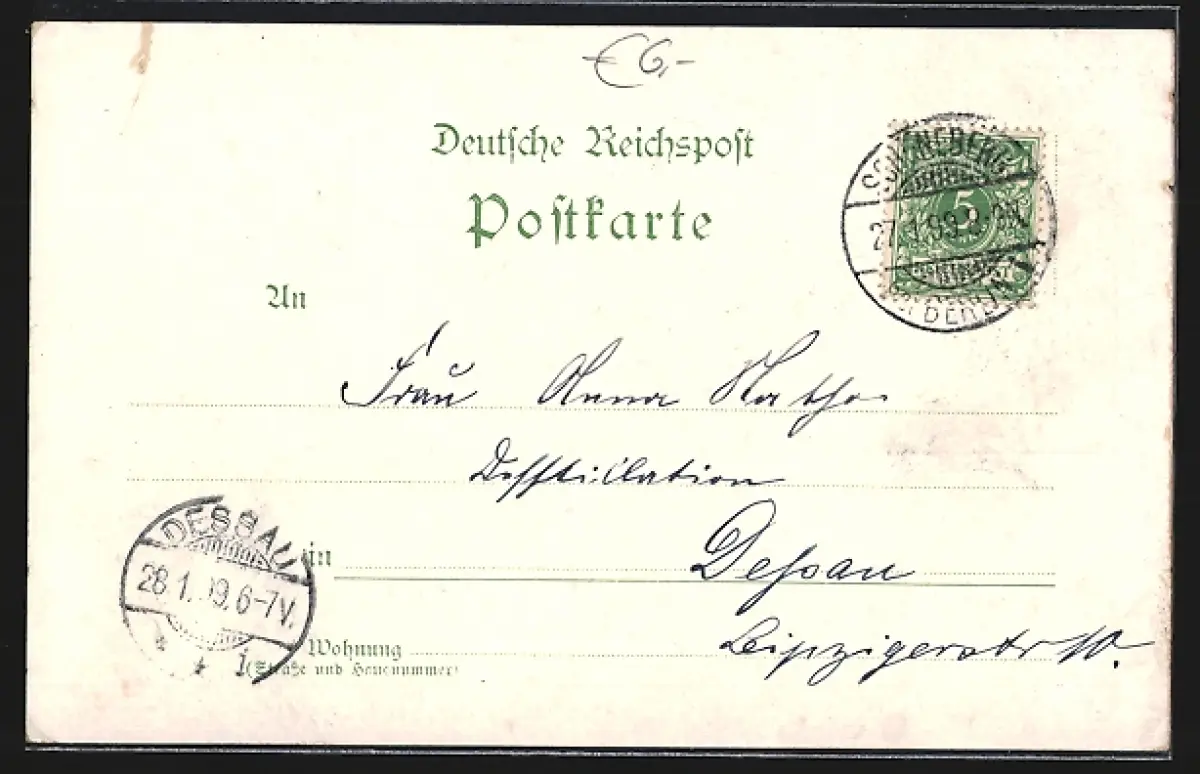 € 6,-
Deutsche Reichspost
Postkarte
SCHÖNEBERG
27.1.99.8-9N.
5
BERLIN
An
Frau Anna Mathe
Desstillation
DESSAU
28.1.99.6-7V.
1
in Dessau
Wohnung Leipzigerstr 10.
(Straße und Hausnummer)